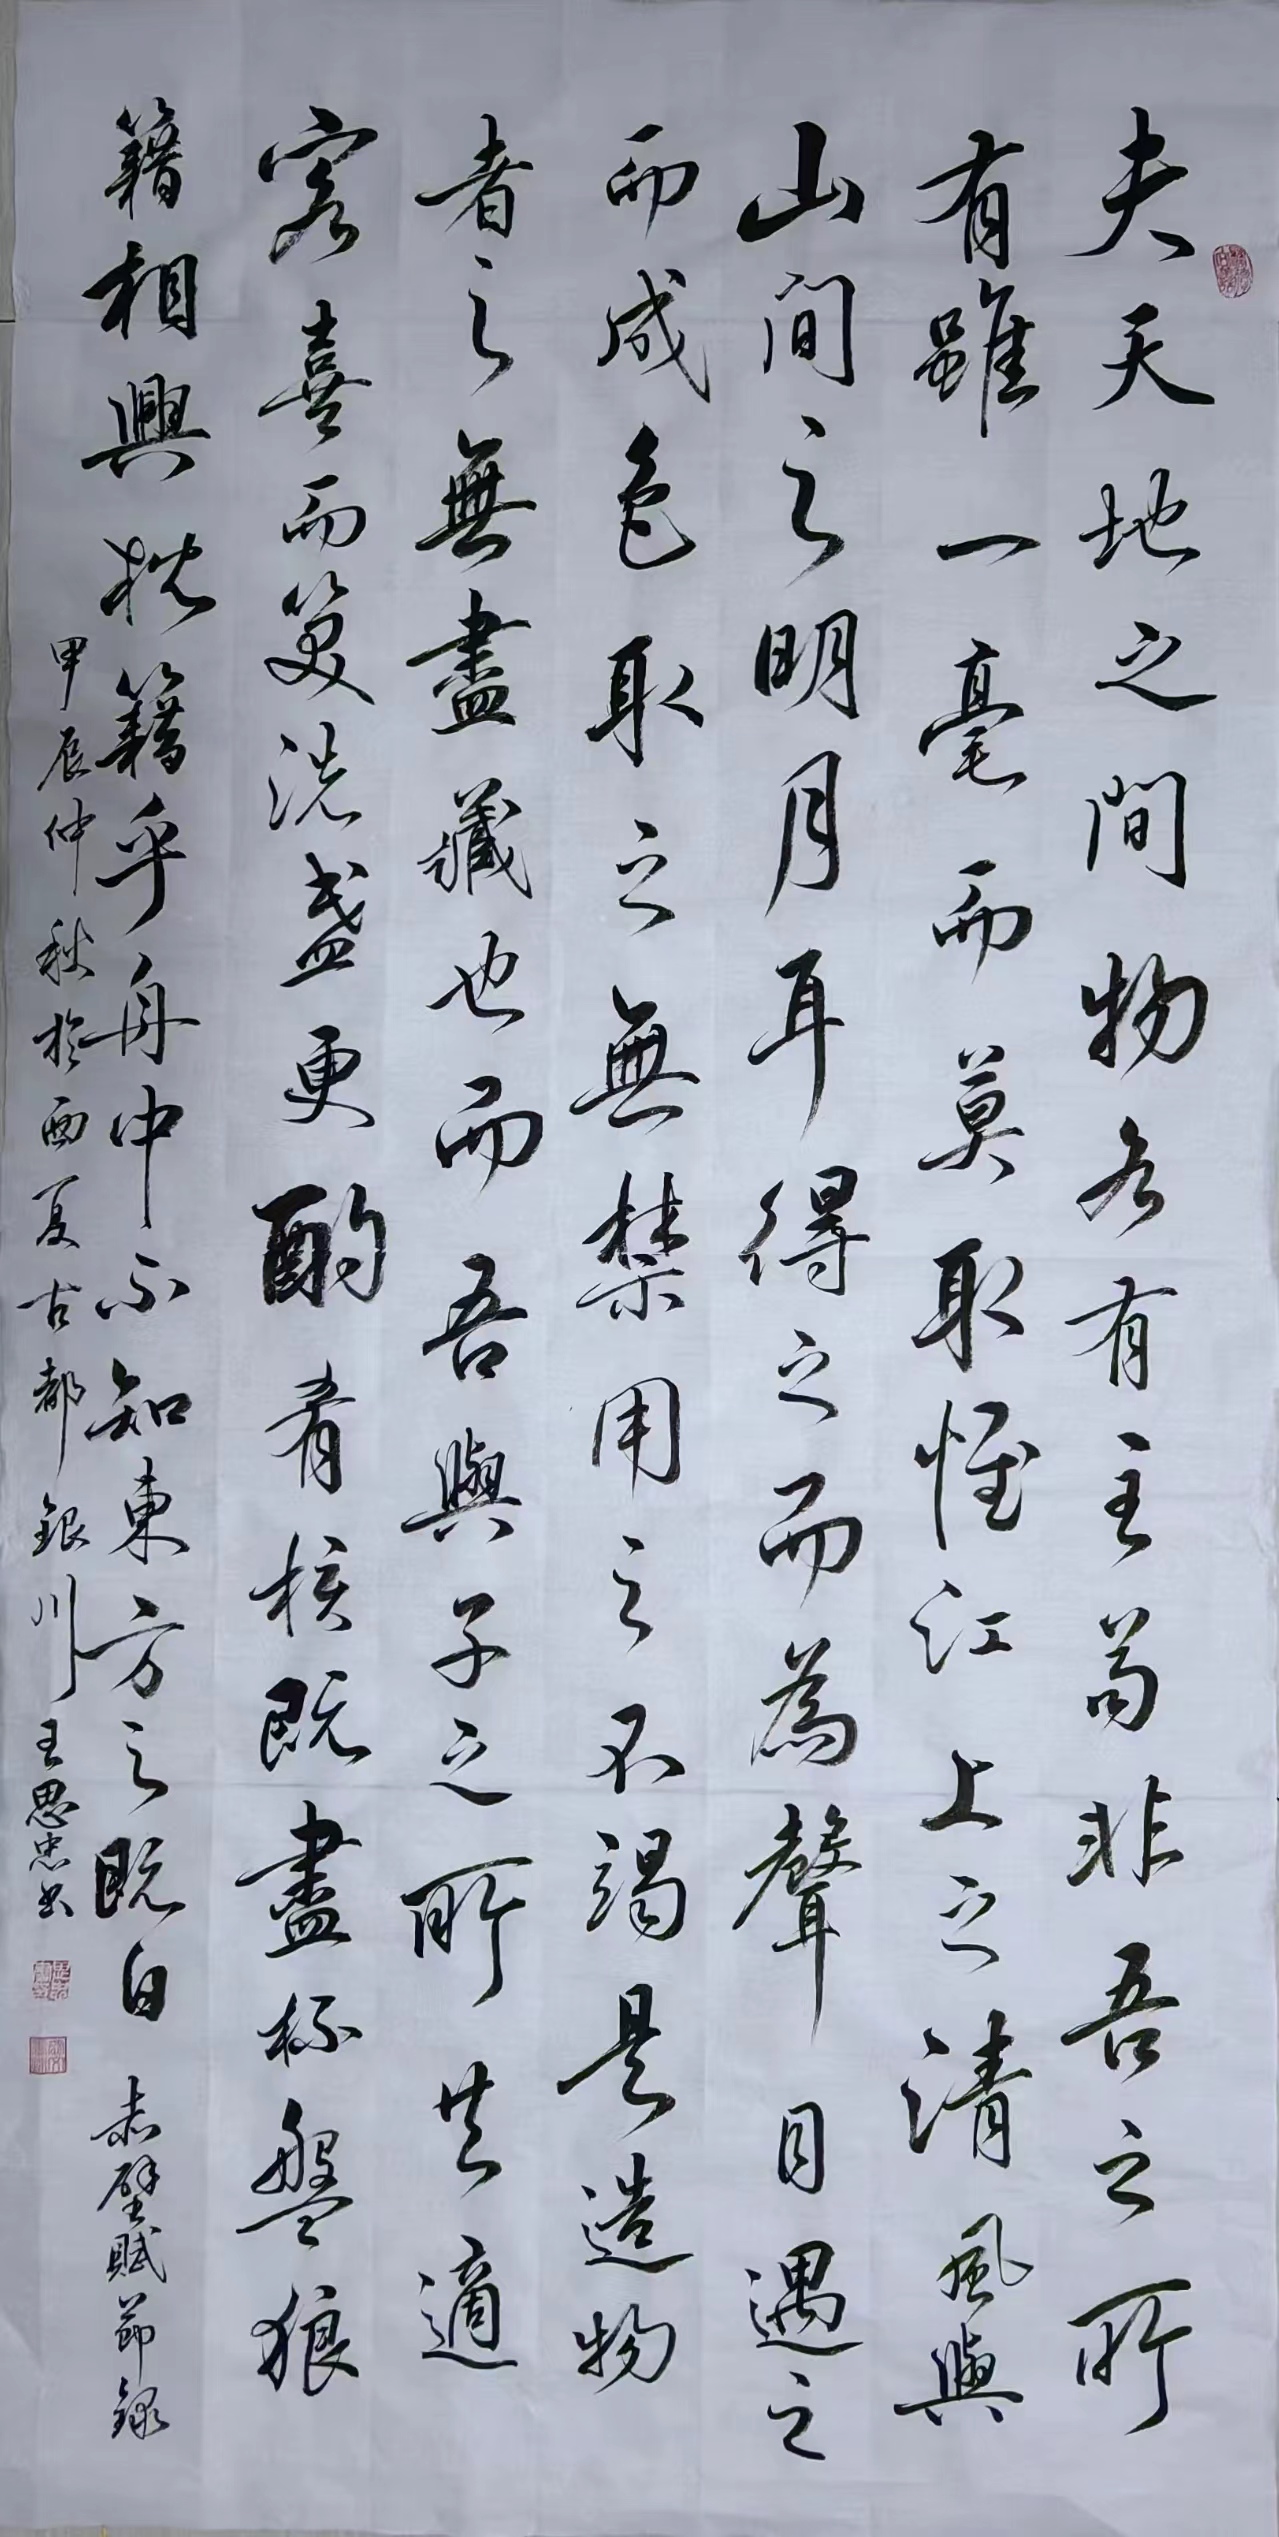 夫天地之間物各有主苟非吾之所
有雖一毫而莫取惟江上之清風與
山間之明月耳得之而為聲目遇之
而成色取之無禁用之不竭是造物
者之無盡藏也而吾與子之所共適
客喜而笑洗盏更酌肴核既盡杯盤狼
籍相興枕籍乎舟中不知東方之既白 赤壁賦節錄
甲辰仲秋於西夏古都銀川王思忠书